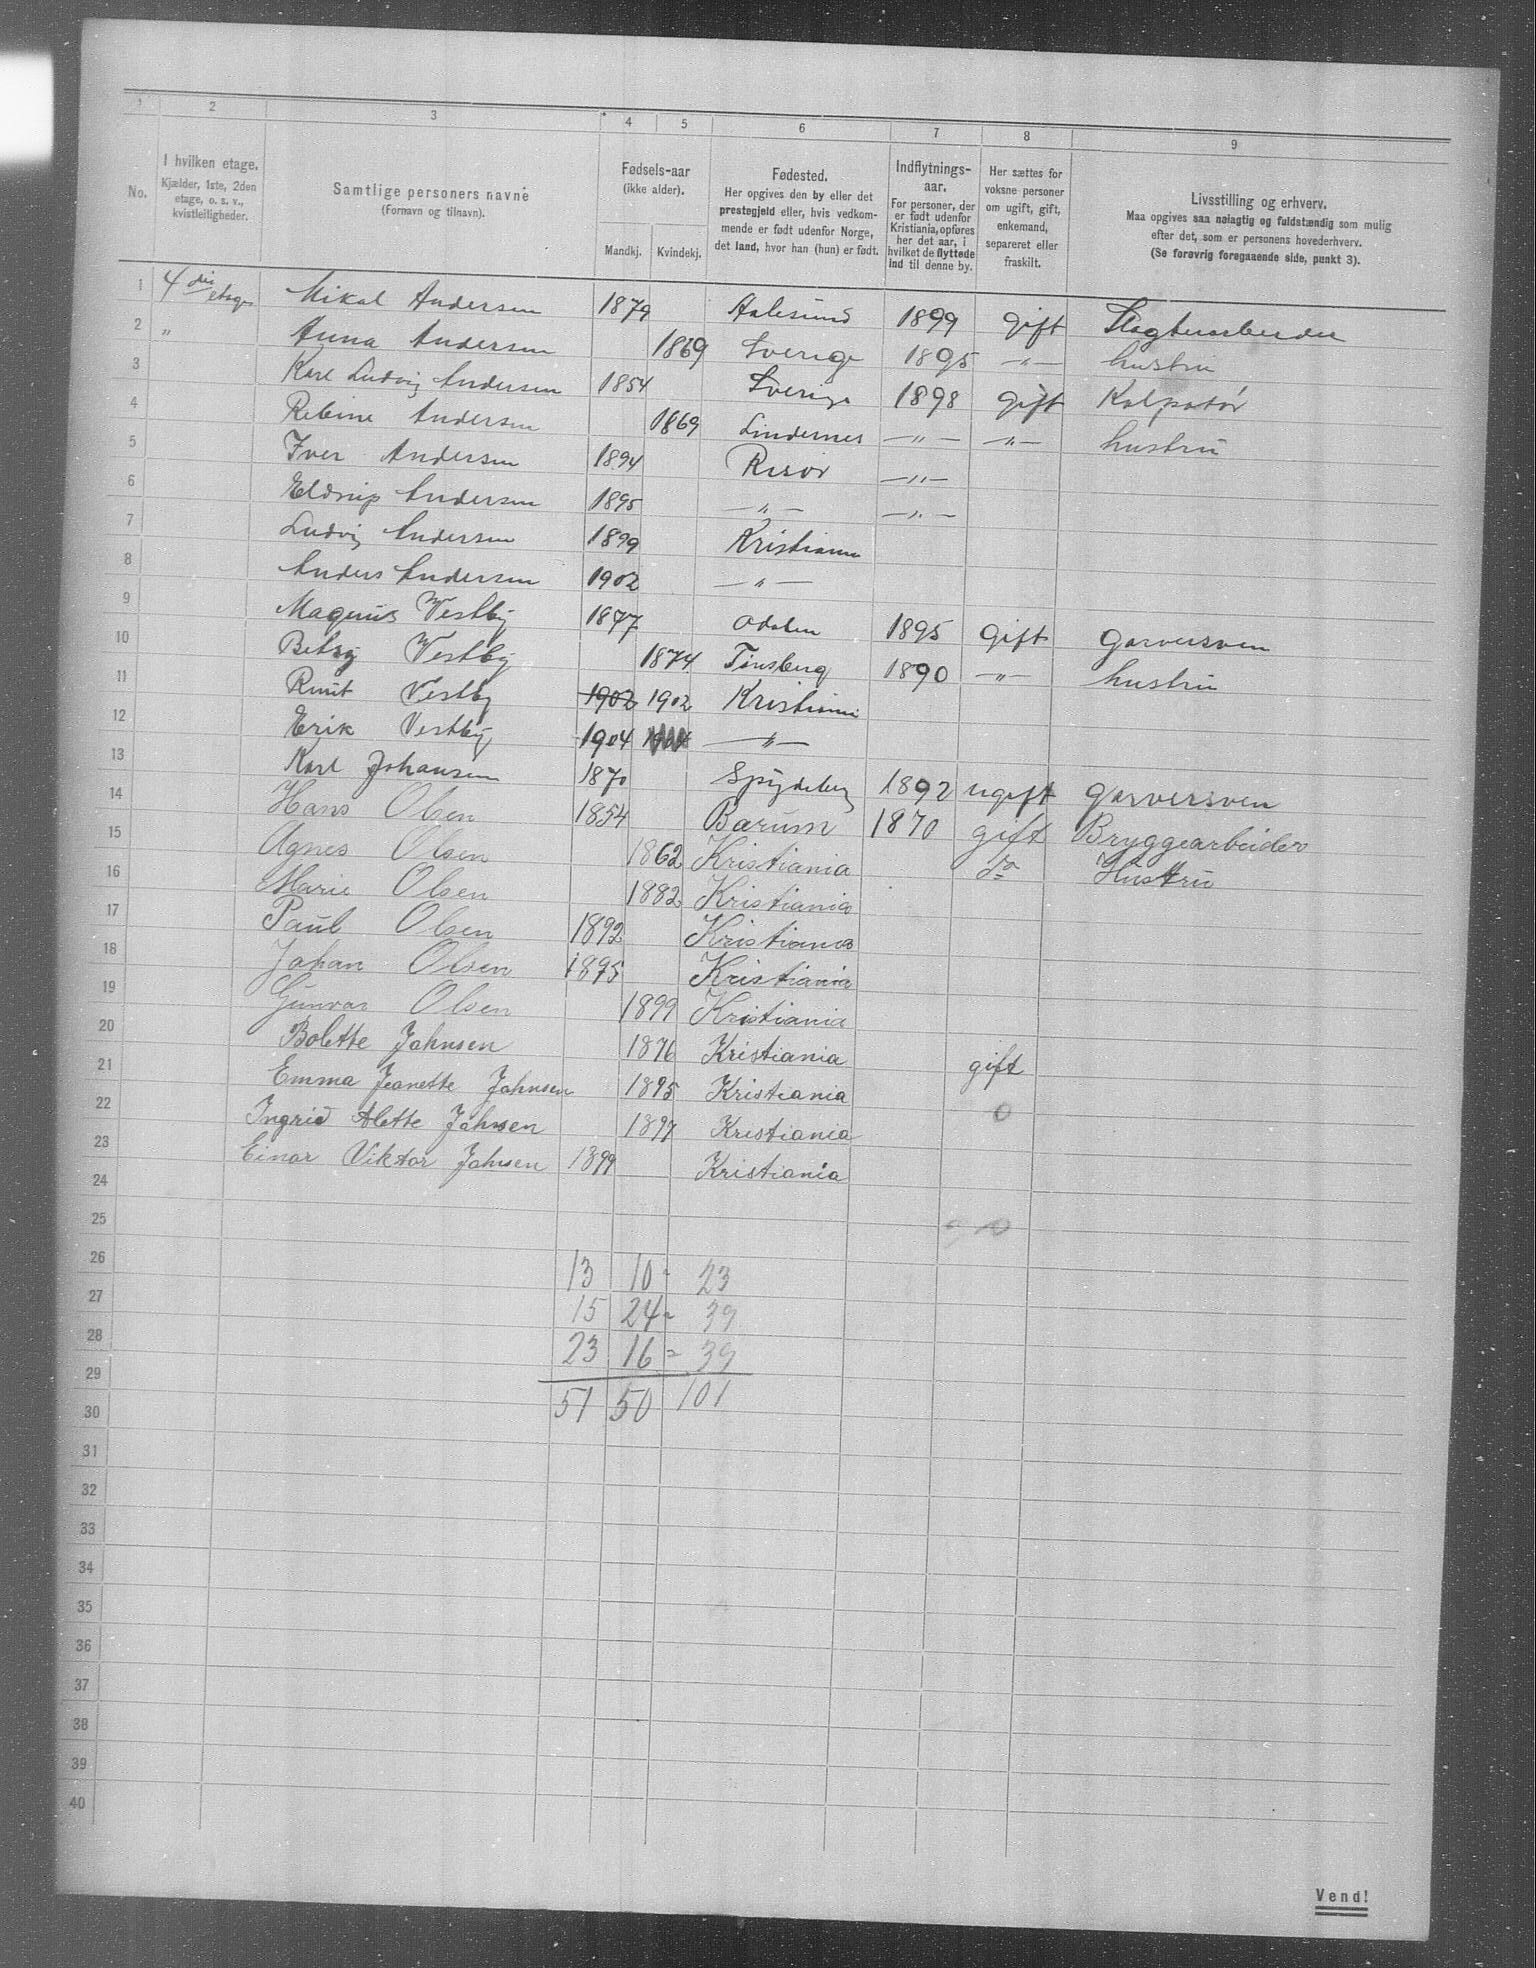 1 2 3 4 5 6 7 8 9
No.
I hvilken etage.
Kjælder, 1ste, 2den
etage, o. s. v.,
kvistleiligheder.
Samtlige personers navne
(Fornavn og tilnavn).
Fødsels-aar
(ikke alder).
Mandkj. Kvindekj.
Fødested.
Her opgives den by eller det
prestegjeld eller, hvis vedkom-
mende er født udenfor Norge,
det land, hvor han (hun) er født.
Indflytnings-
aar.
For personer, der
er født udenfor
Kristiania, opføres
her det aar, i
hvilket de flyttede
ind til denne by.
Her sættes for
voksne personer
om ugift, gift,
enkemand,
separeret eller
fraskilt.
Livsstilling og erhverv.
Maa opgives saa nøiagtig og fuldstændig som mulig
efter det, som er personens hovederhverv.
(Se forøvrig foregaaende side, punkt 3).
1 4 die etage Mikal Andersen 1879 Aalesund 1899 gift Slagteriarbeider
2 " Anna Andersen 1869 Sverige 1895 —"— hustru
3 Karl Ludvig Andersen 1854 Sverige 1898 gift Kolportør
4 Rebine Andersen 1869 Lindernes —"— —"— hustru
5 Iver Andersen 1894 Risør —"—
6 Eldrup Andersen 1895 —"— —"—
7 Ludvig Andersen 1899 Kristiania
8 Anders Andersen 1902 —"—
9 Magnus Vestby 1877 Odalen 1895 gift garversven
10 Betsy Vestby 1874 Tønsberg 1890 —"— hustru
11 Ruut Vestby 1902 1902 Kristiania
12 Erik Vestby 1904 —"—
13 Karl Johansen 1870 Spydeberg 1892 ugift garversven
14 Hans Olsen 1854 Bærum 1870 gift Bryggearbeider
15 Agnes Olsen 1862 Kristiania do Hustru
16 Marie Olsen 1882 Kristiania
17 Paul Olsen 1892 Kristiania
18 Johan Olsen 1895 Kristiania
19 Gunvor Olsen 1899 Kristiania
20 Bolette Johnsen 1876 Kristiania gift
21 Emma Jeanette Johnsen 1895 Kristiania
22 Ingrid Alette Johnsen 1897 Kristiania 0
23 Einar Viktor Johnsen 1899 Kristiania
24
25
26 13 10 - 23
27 15 24 - 39
28 23 16 = 39
29 51 50 101
30
31
32
33
34
35
36
37
38
39
40
Vend!